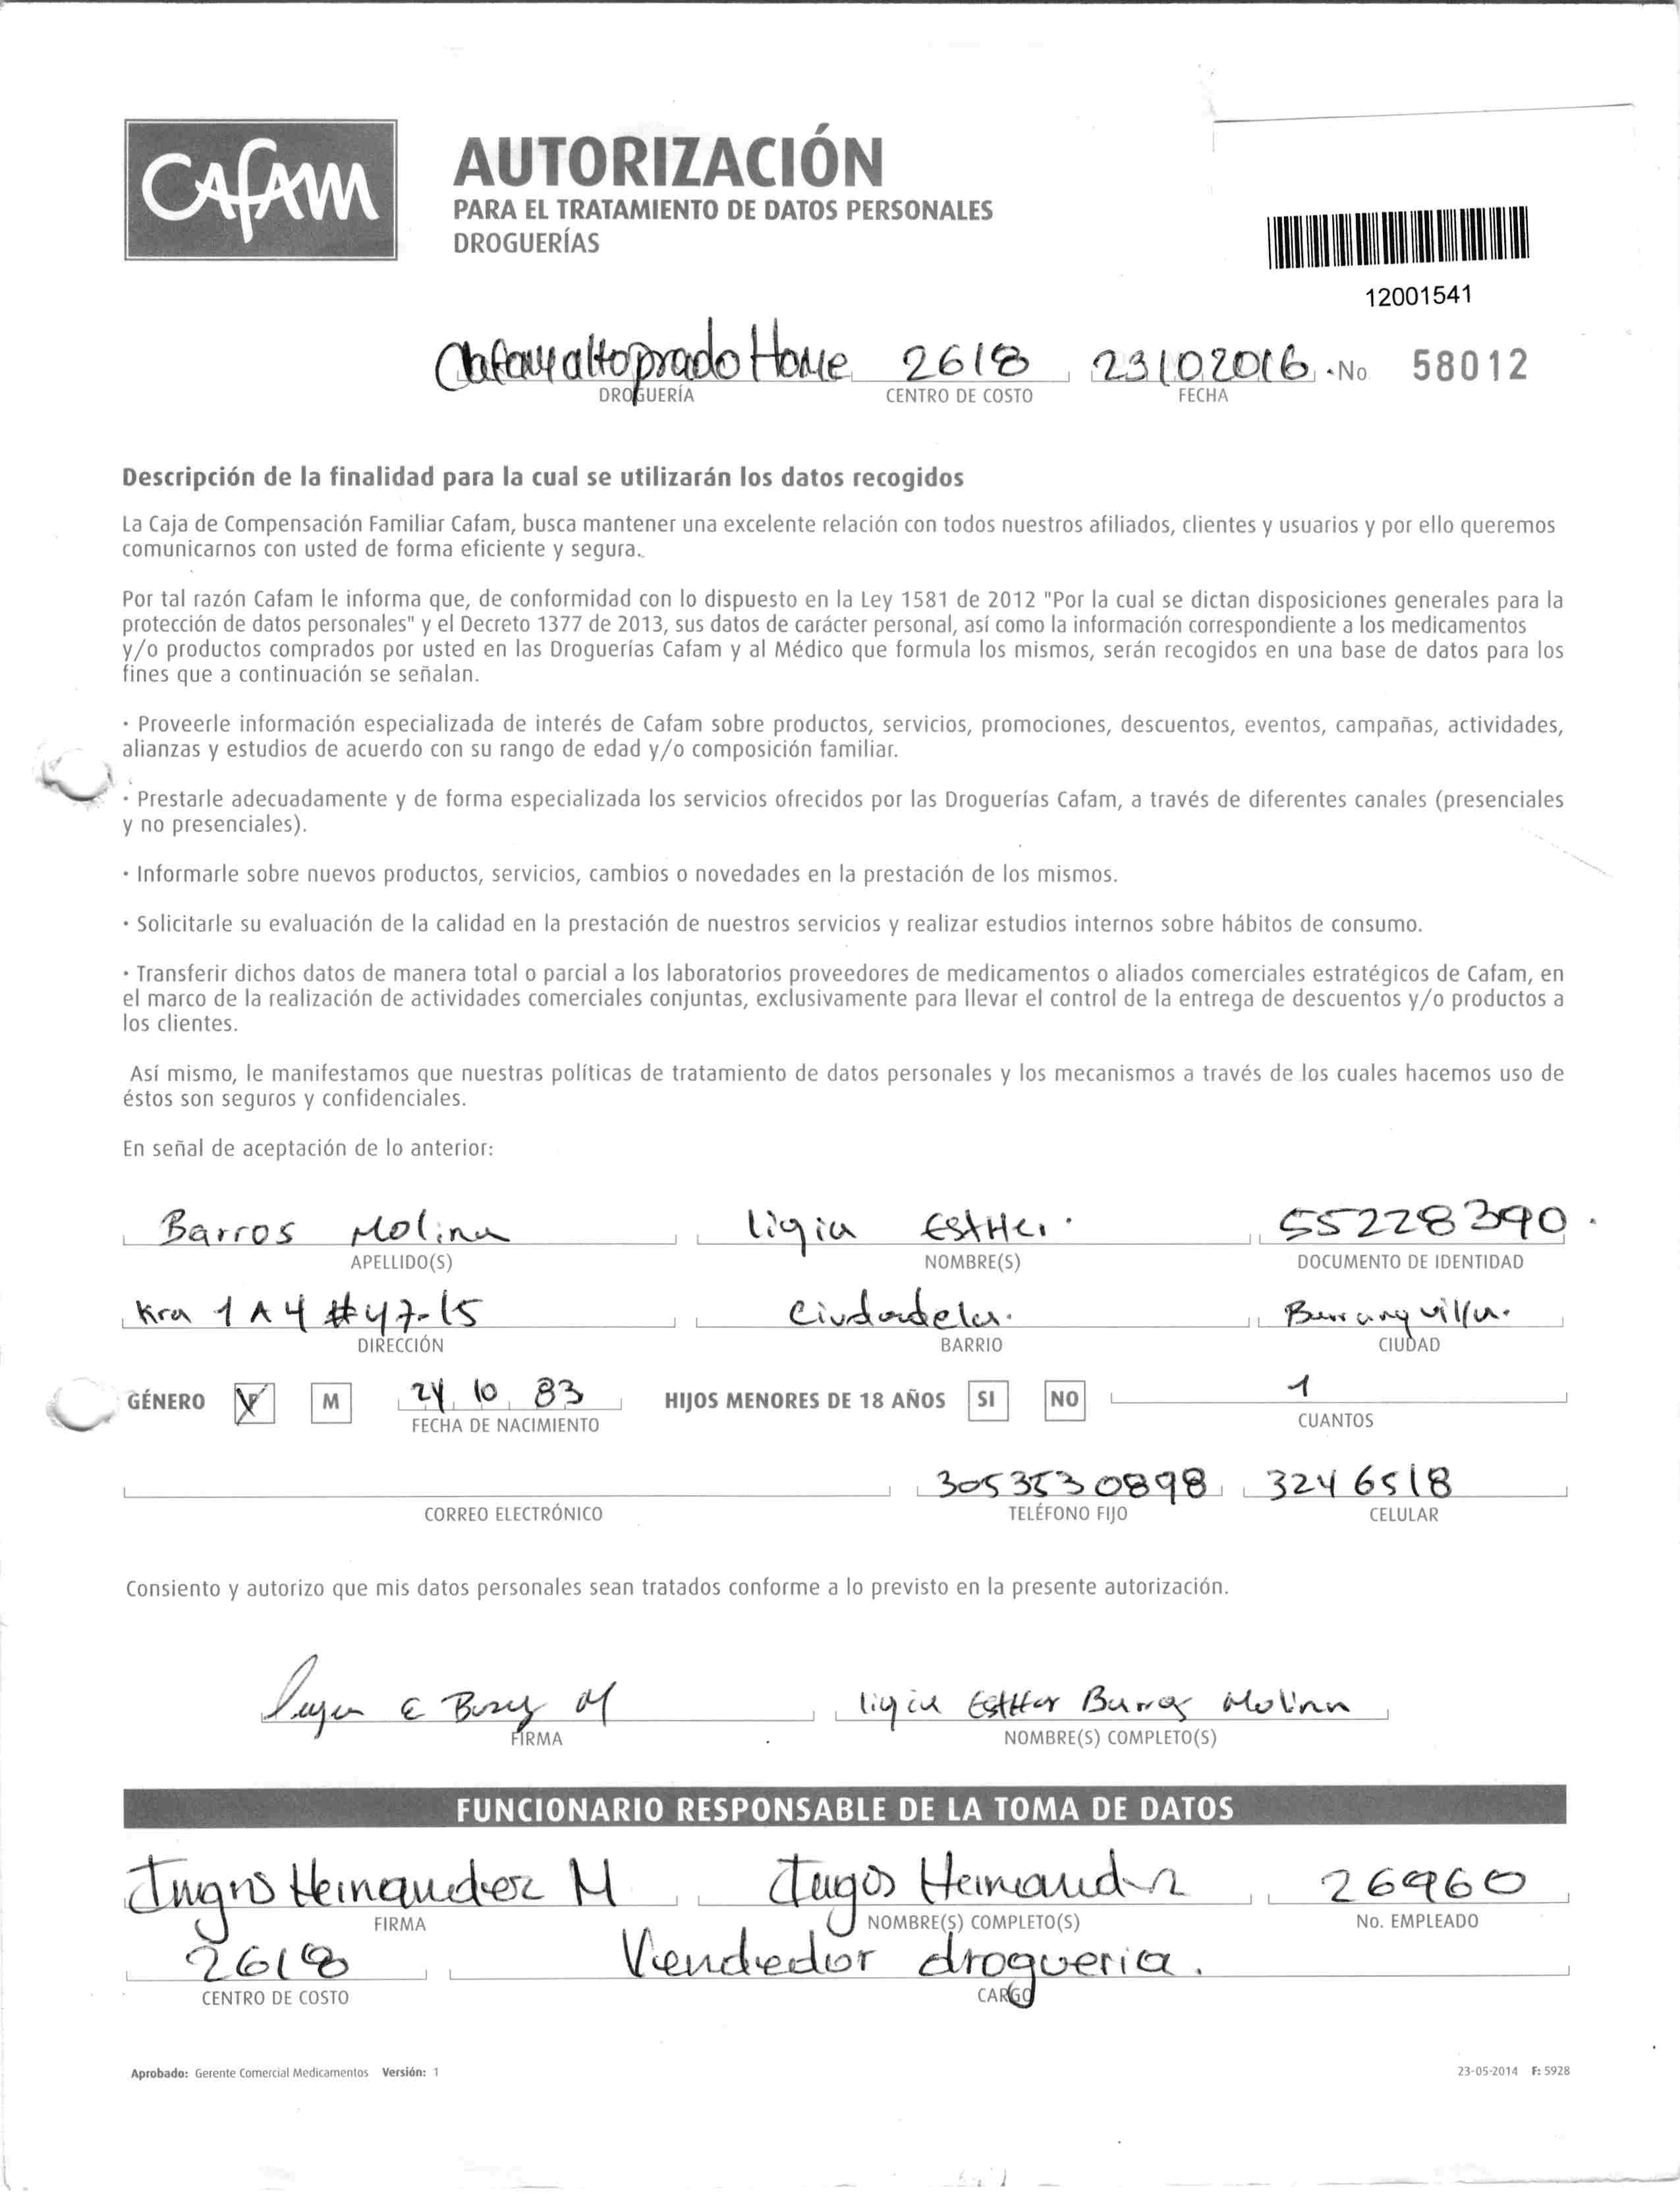 CAFAM
AUTORIZACIÓN
PARA EL TRATAMIENTO DE DATOS PERSONALES
DROGUERÍAS
12001541
Cafam altoprado Home 2618 23/02016 No 58012
DROGUERÍA CENTRO DE COSTO FECHA
Descripción de la finalidad para la cual se utilizarán los datos recogidos
La Caja de Compensación Familiar Cafam, busca mantener una excelente relación con todos nuestros afiliados, clientes y usuarios y por ello queremos
comunicarnos con usted de forma eficiente y segura.
Por tal razón Cafam le informa que, de conformidad con lo dispuesto en la Ley 1581 de 2012 "Por la cual se dictan disposiciones generales para la
protección de datos personales" y el Decreto 1377 de 2013, sus datos de carácter personal, así como la información correspondiente a los medicamentos
y/o productos comprados por usted en las Droguerías Cafam y al Médico que formula los mismos, serán recogidos en una base de datos para los
fines que a continuación se señalan.
· Proveerle información especializada de interés de Cafam sobre productos, servicios, promociones, descuentos, eventos, campañas, actividades,
alianzas y estudios de acuerdo con su rango de edad y/o composición familiar.
· Prestarle adecuadamente y de forma especializada los servicios ofrecidos por las Droguerías Cafam, a través de diferentes canales (presenciales
y no presenciales).
· Informarle sobre nuevos productos, servicios, cambios o novedades en la prestación de los mismos.
· Solicitarle su evaluación de la calidad en la prestación de nuestros servicios y realizar estudios internos sobre hábitos de consumo.
· Transferir dichos datos de manera total o parcial a los laboratorios proveedores de medicamentos o aliados comerciales estratégicos de Cafam, en
el marco de la realización de actividades comerciales conjuntas, exclusivamente para llevar el control de la entrega de descuentos y/o productos a
los clientes.
Así mismo, le manifestamos que nuestras políticas de tratamiento de datos personales y los mecanismos a través de los cuales hacemos uso de
éstos son seguros y confidenciales.
En señal de aceptación de lo anterior:
Barros Molina ligia Esther. 55228390.
APELLIDO(S) NOMBRE(S) DOCUMENTO DE IDENTIDAD
Kra 1 A 4 #47-15 Ciudadela. Barranquilla.
DIRECCIÓN BARRIO CIUDAD
GÉNERO F M 24 10 83 HIJOS MENORES DE 18 AÑOS SI NO 1
FECHA DE NACIMIENTO CUANTOS
3053530898 3246518
CORREO ELECTRÓNICO TELÉFONO FIJO CELULAR
Consiento y autorizo que mis datos personales sean tratados conforme a lo previsto en la presente autorización.
E M ligia Esther Barros Molina
FIRMA NOMBRE(S) COMPLETO(S)
FUNCIONARIO RESPONSABLE DE LA TOMA DE DATOS
Hernandez M 26960
FIRMA NOMBRE(S) COMPLETO(S) No. EMPLEADO
2618 Vendedor drogueria.
CENTRO DE COSTO CARGO
Aprobado: Gerente Comercial Medicamentos Versión: 1 23-05-2014 F: 5928